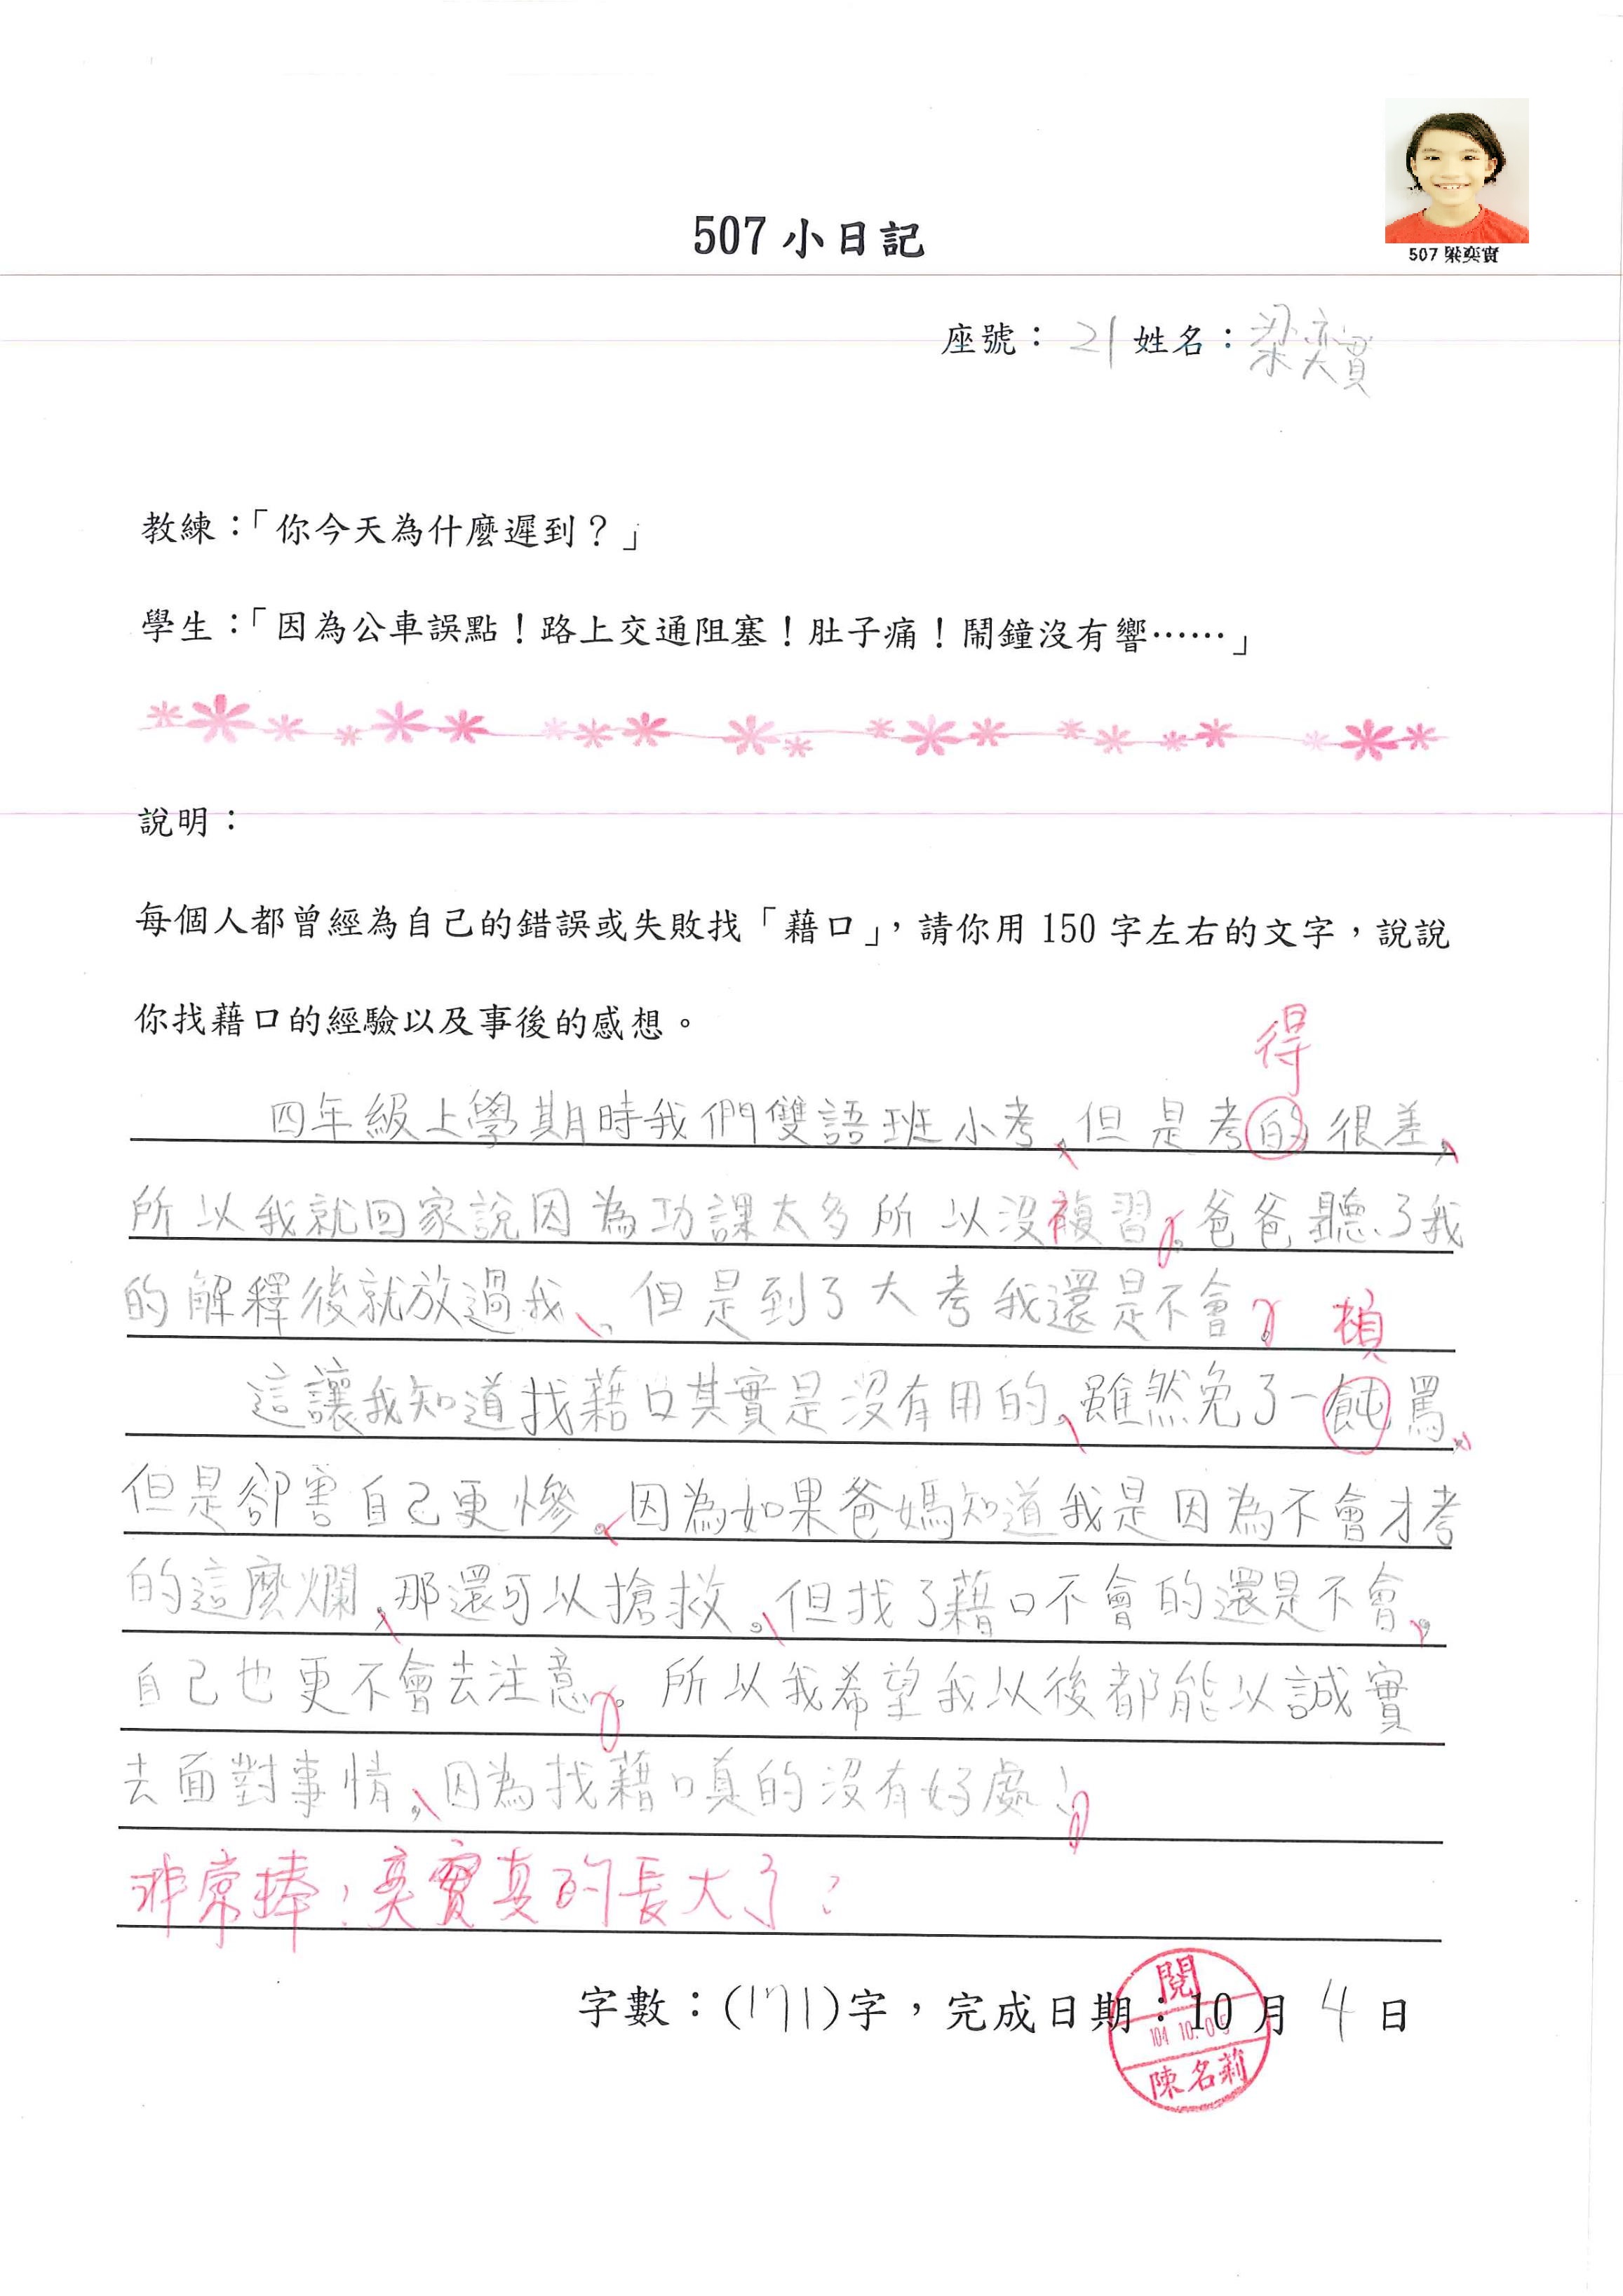 507 梁奕實
507 小日記
座號：21 姓名：梁奕實
教練：「你今天為什麼遲到？」
學生：「因為公車誤點！路上交通阻塞！肚子痛！鬧鐘沒有響……」
說明：
每個人都曾經為自己的錯誤或失敗找「藉口」，請你用 150 字左右的文字，說說
你找藉口的經驗以及事後的感想。
得
四年級上學期時我們雙語班小考，但是考的很差，
所以我就回家說因為功課太多所以沒複習。爸爸聽了我
的解釋後就放過我，但是到了大考我還是不會。
頓
這讓我知道找藉口其實是沒有用的，雖然免了一飩罵，
但是卻害自己更慘，因為如果爸媽知道我是因為不會才考
的這麼爛，那還可以搶救。但找了藉口不會的還是不會，
自己也更不會去注意。所以我希望我以後都能以誠實
去面對事情，因為找藉口真的沒有好處！
非常棒！奕實真的長大了！
字數：(171)字，完成日期：10 月 4 日
閱
104.10.05
陳名莉